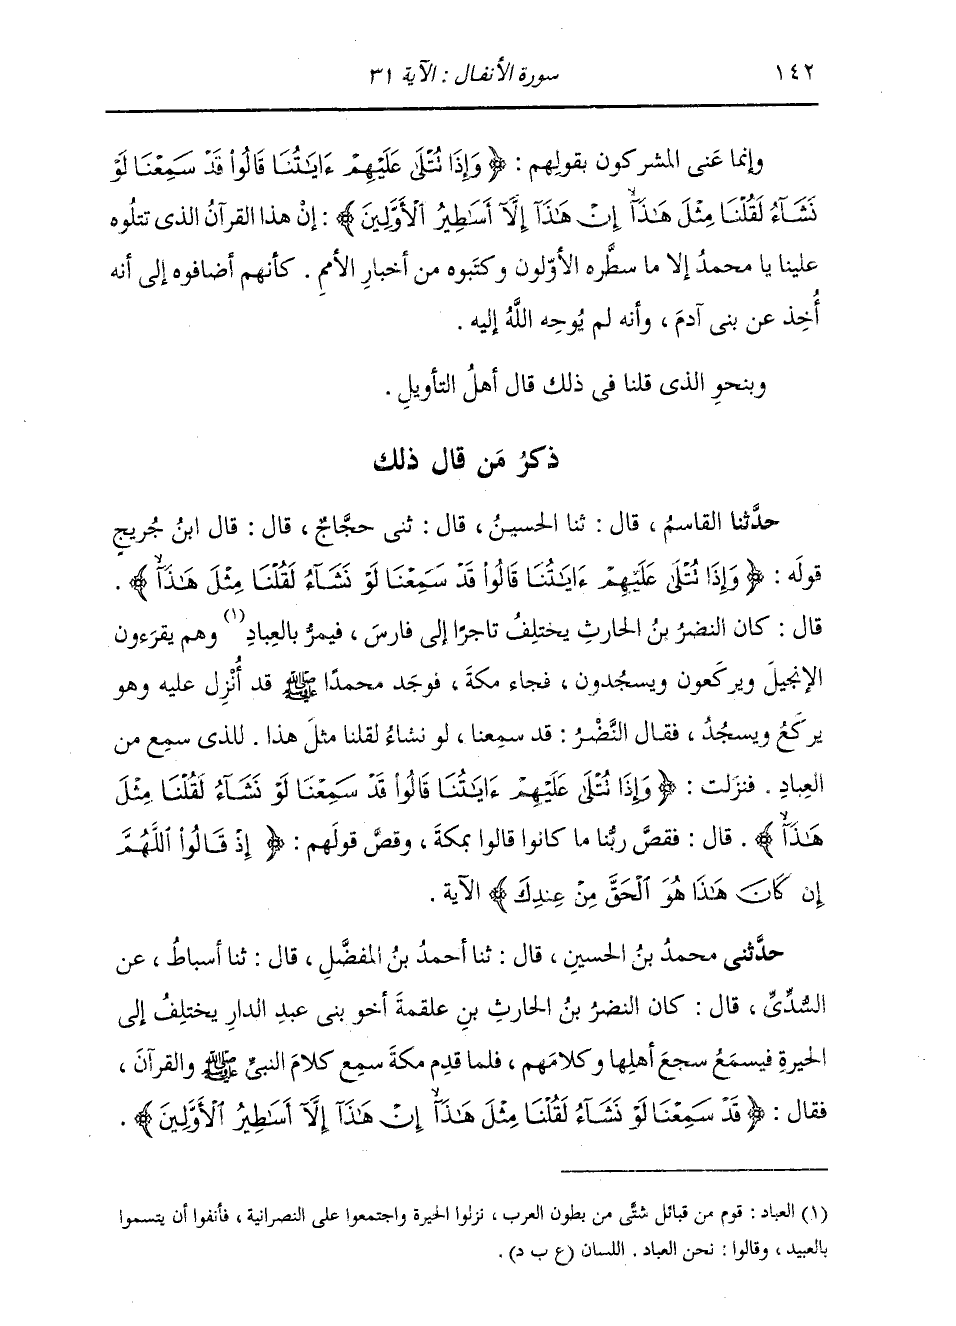 ١٤٢ سورة الأنفال : الآية ٣١
وإنما عَنى المشركون بقولِهم : ﴿ وَإِذَا نُتْلَى عَلَيْهِمْ ءَايَٰتُنَا قَالُوا۟ قَدْ سَمِعْنَا لَوْ
نَشَآءُ لَقُلْنَا مِثْلَ هَٰذَآ ۙ إِنْ هَٰذَآ إِلَّآ أَسَٰطِيرُ ٱلْأَوَّلِينَ ﴾ : إنْ هذا القرآنُ الذى تتلُوه
علينا يا محمدُ إلا ما سطَّره الأوّلون وكتَبوه من أخبارِ الأممِ . كأنهم أضافوه إلى أنه
أُخِذ عن بنى آدمَ ، وأنه لم يُوحِه اللَّهُ إليه .
وبنحوِ الذى قلنا فى ذلك قال أهلُ التأويلِ .
ذكرُ مَن قال ذلك
حدَّثنا القاسمُ ، قال : ثنا الحسينُ ، قال : ثنى حجَّاجٌ ، قال : قال ابنُ جُريجٍ
قولَه : ﴿ وَإِذَا نُتْلَى عَلَيْهِمْ ءَايَٰتُنَا قَالُوا۟ قَدْ سَمِعْنَا لَوْ نَشَآءُ لَقُلْنَا مِثْلَ هَٰذَآ ۙ ﴾ .
قال : كان النضرُ بنُ الحارثِ يختلِفُ تاجرًا إلى فارسَ ، فيمرُّ بالعِبادِ (١) وهم يقرَءون
الإنجيلَ ويركَعون ويسجُدون ، فجاء مكةَ ، فوجَد محمدًا ﷺ قد أُنْزِل عليه وهو
يركَعُ ويسجُدُ ، فقال النَّضْرُ : قد سمِعنا ، لو نشاءُ لقلنا مثلَ هذا . للذى سمِع من
العِبادِ . فنزَلت : ﴿ وَإِذَا نُتْلَى عَلَيْهِمْ ءَايَٰتُنَا قَالُوا۟ قَدْ سَمِعْنَا لَوْ نَشَآءُ لَقُلْنَا مِثْلَ
هَٰذَآ ۙ ﴾ . قال : فقصَّ ربُّنا ما كانوا قالوا بمكةَ ، وقصَّ قولَهم : ﴿ إِذْ قَالُوا۟ ٱللَّهُمَّ
إِن كَانَ هَٰذَا هُوَ ٱلْحَقَّ مِنْ عِندِكَ ﴾ الآية .
حدَّثنى محمدُ بنُ الحسينِ ، قال : ثنا أحمدُ بنُ المفضَّلِ ، قال : ثنا أسباطُ ، عن
السُّدِّىِّ ، قال : كان النضرُ بنُ الحارثِ بنِ علقمةَ أخو بنى عبدِ الدارِ يختلِفُ إلى
الحيرةِ فيسمَعُ سجعَ أهلِها وكلامَهم ، فلما قدِم مكةَ سمِع كلامَ النبىِّ ﷺ والقرآنَ ،
فقال : ﴿ قَدْ سَمِعْنَا لَوْ نَشَآءُ لَقُلْنَا مِثْلَ هَٰذَآ ۙ إِنْ هَٰذَآ إِلَّآ أَسَٰطِيرُ ٱلْأَوَّلِينَ ﴾ .
(١) العباد : قوم من قبائل شتَّى من بطون العرب ، نزلوا الحيرة واجتمعوا على النصرانية ، فأنفوا أن يتسموا
بالعبيد ، وقالوا : نحن العباد . اللسان (ع ب د) .